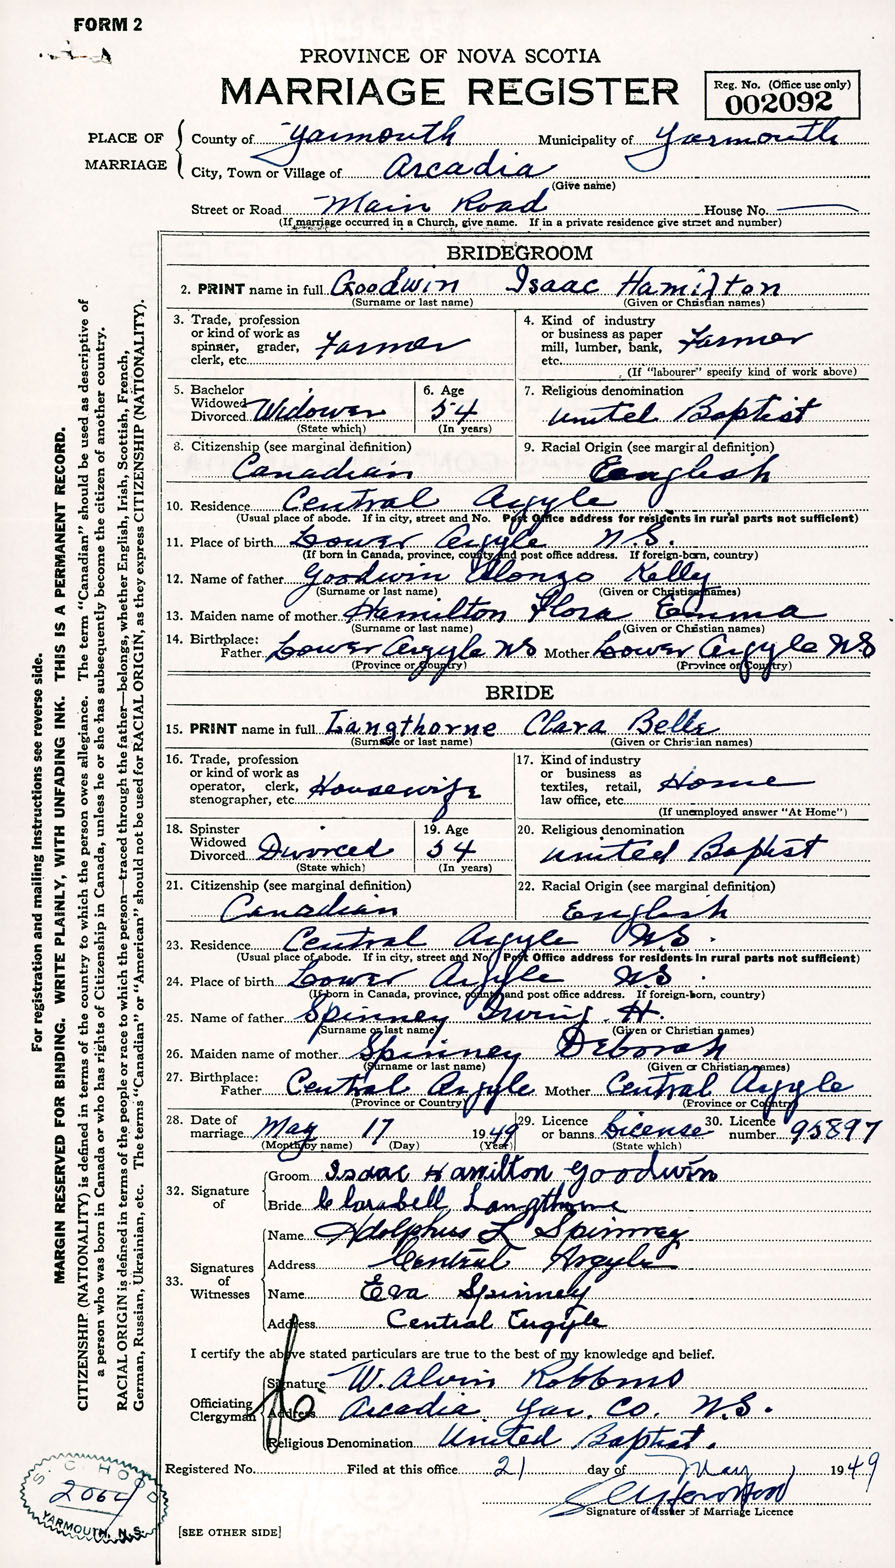 FORM 2
PROVINCE OF NOVA SCOTIA
MARRIAGE REGISTER
Reg. No. (Office use only)
002092
PLACE OF MARRIAGE
County of Yarmouth Municipality of Yarmouth
City, Town or Village of Arcadia
(Give name)
Street or Road Main Road House No.
(If marriage occurred in a Church, give name. If in a private residence give street and number)
BRIDEGROOM
2. PRINT name in full Goodwin Isaac Hamilton
(Surname or last name) (Given or Christian names)
3. Trade, profession or kind of work as spinner, grader, clerk, etc. Farmer
4. Kind of industry or business as paper mill, lumber, bank, etc. Farmer
(If "labourer" specify kind of work above)
5. Bachelor Widowed Divorced Widower
(State which)
6. Age 54
(In years)
7. Religious denomination
United Baptist
8. Citizenship (see marginal definition)
Canadian
9. Racial Origin (see marginal definition)
English
10. Residence Central Argyle
(Usual place of abode. If in city, street and No. Post Office address for residents in rural parts not sufficient)
11. Place of birth Lower Argyle N.S.
(If born in Canada, province, county and post office address. If foreign-born, country)
12. Name of father Goodwin Alonzo Kelly
(Surname or last name) (Given or Christian names)
13. Maiden name of mother Hamilton Flora Emma
(Surname or last name) (Given or Christian names)
14. Birthplace:
Father Lower Argyle NS Mother Lower Argyle NS
(Province or Country) (Province or Country)
BRIDE
15. PRINT name in full Langthorne Clara Belle
(Surname or last name) (Given or Christian names)
16. Trade, profession or kind of work as operator, clerk, stenographer, etc. Housewife
17. Kind of industry or business as textiles, retail, law office, etc. Home
(If unemployed answer "At Home")
18. Spinster Widowed Divorced Divorced
(State which)
19. Age 54
(In years)
20. Religious denomination
United Baptist
21. Citizenship (see marginal definition)
Canadian
22. Racial Origin (see marginal definition)
English
23. Residence Central Argyle N.S.
(Usual place of abode. If in city, street and No. Post Office address for residents in rural parts not sufficient)
24. Place of birth Lower Argyle N.S.
(If born in Canada, province, county and post office address. If foreign-born, country)
25. Name of father Spinney Irving H.
(Surname or last name) (Given or Christian names)
26. Maiden name of mother Spinney Deborah
(Surname or last name) (Given or Christian names)
27. Birthplace:
Father Central Argyle Mother Central Argyle
(Province or Country) (Province or Country)
28. Date of marriage May 17 1949
(Month by name) (Day) (Year)
29. Licence or banns License
(State which)
30. Licence number 95897
32. Signature of
Groom Isaac Hamilton Goodwin
Bride Clarabell Langthorne
33. Signatures of Witnesses
Name Adolphus L Spinney
Address Central Argyle
Name Eva Spinney
Address Central Argyle
I certify the above stated particulars are true to the best of my knowledge and belief.
Officiating Clergyman
Signature W. Alvin Robbins
Address Arcadia Yar. Co. N.S.
Religious Denomination United Baptist.
Registered No. Filed at this office 21 day of May 1949
Signature of Issuer of Marriage Licence
[SEE OTHER SIDE]
S. C. HOOD
2064
YARMOUTH, N.S.
For registration and mailing instructions see reverse side.
MARGIN RESERVED FOR BINDING. WRITE PLAINLY, WITH UNFADING INK. THIS IS A PERMANENT RECORD.
CITIZENSHIP (NATIONALITY) is defined in terms of the country to which the person owes allegiance. The term "Canadian" should be used as descriptive of
a person who was born in Canada or who has rights of Citizenship in Canada, unless he or she has subsequently become the citizen of another country.
RACIAL ORIGIN is defined in terms of the people or race to which the person—traced through the father—belongs, whether English, Irish, Scottish, French,
German, Russian, Ukrainian, etc. The terms "Canadian" or "American" should not be used for RACIAL ORIGIN, as they express CITIZENSHIP (NATIONALITY).